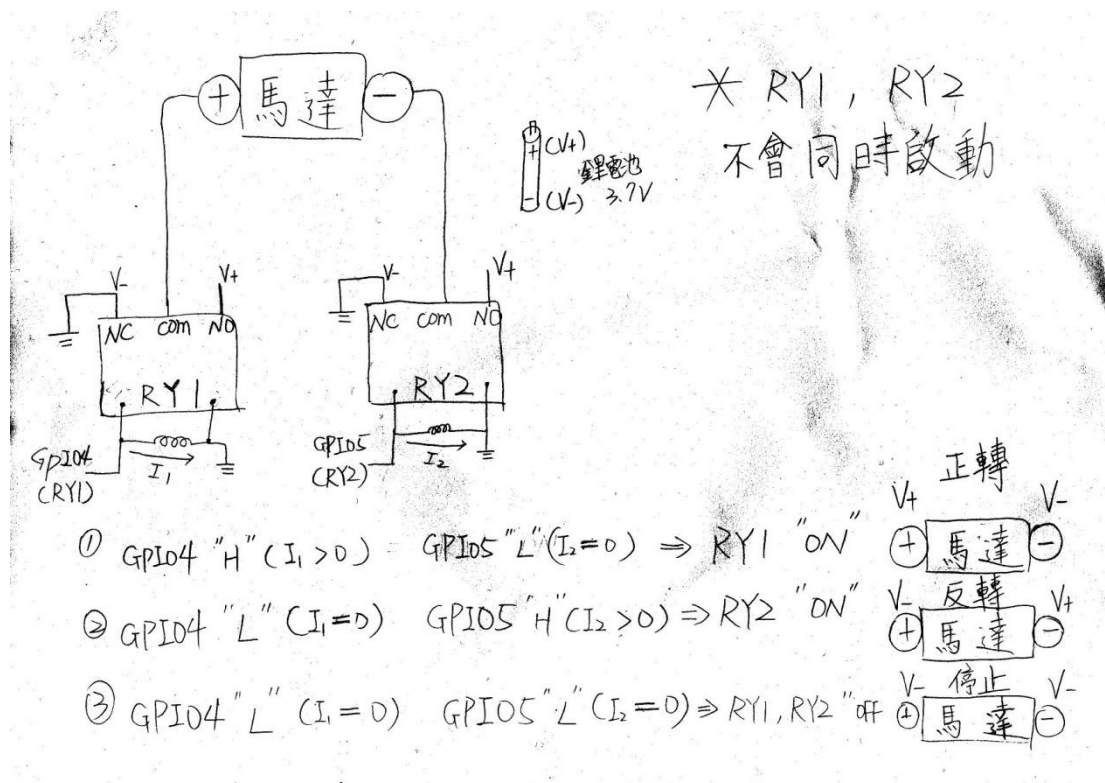 ⊕ 馬達 ⊖
* RY1, RY2
不會同時啟動
+ (V+)
鋰電池
3.7V
- (V-)
V- V+
NC com NO
RY1
GPIO4
(RY1)
I₁
V- V+
NC com NO
RY2
GPIO5
(RY2)
I₂
正轉
V+ V-
① GPIO4 "H" (I₁>0) GPIO5 "L" (I₂=0) ⇒ RY1 "ON" ⊕ 馬達 ⊖
V- 反轉 V+
② GPIO4 "L" (I₁=0) GPIO5 "H" (I₂>0) ⇒ RY2 "ON" ⊕ 馬達 ⊖
V- 停止 V-
③ GPIO4 "L" (I₁=0) GPIO5 "L" (I₂=0) ⇒ RY1, RY2 "OFF ⊕ 馬達 ⊖